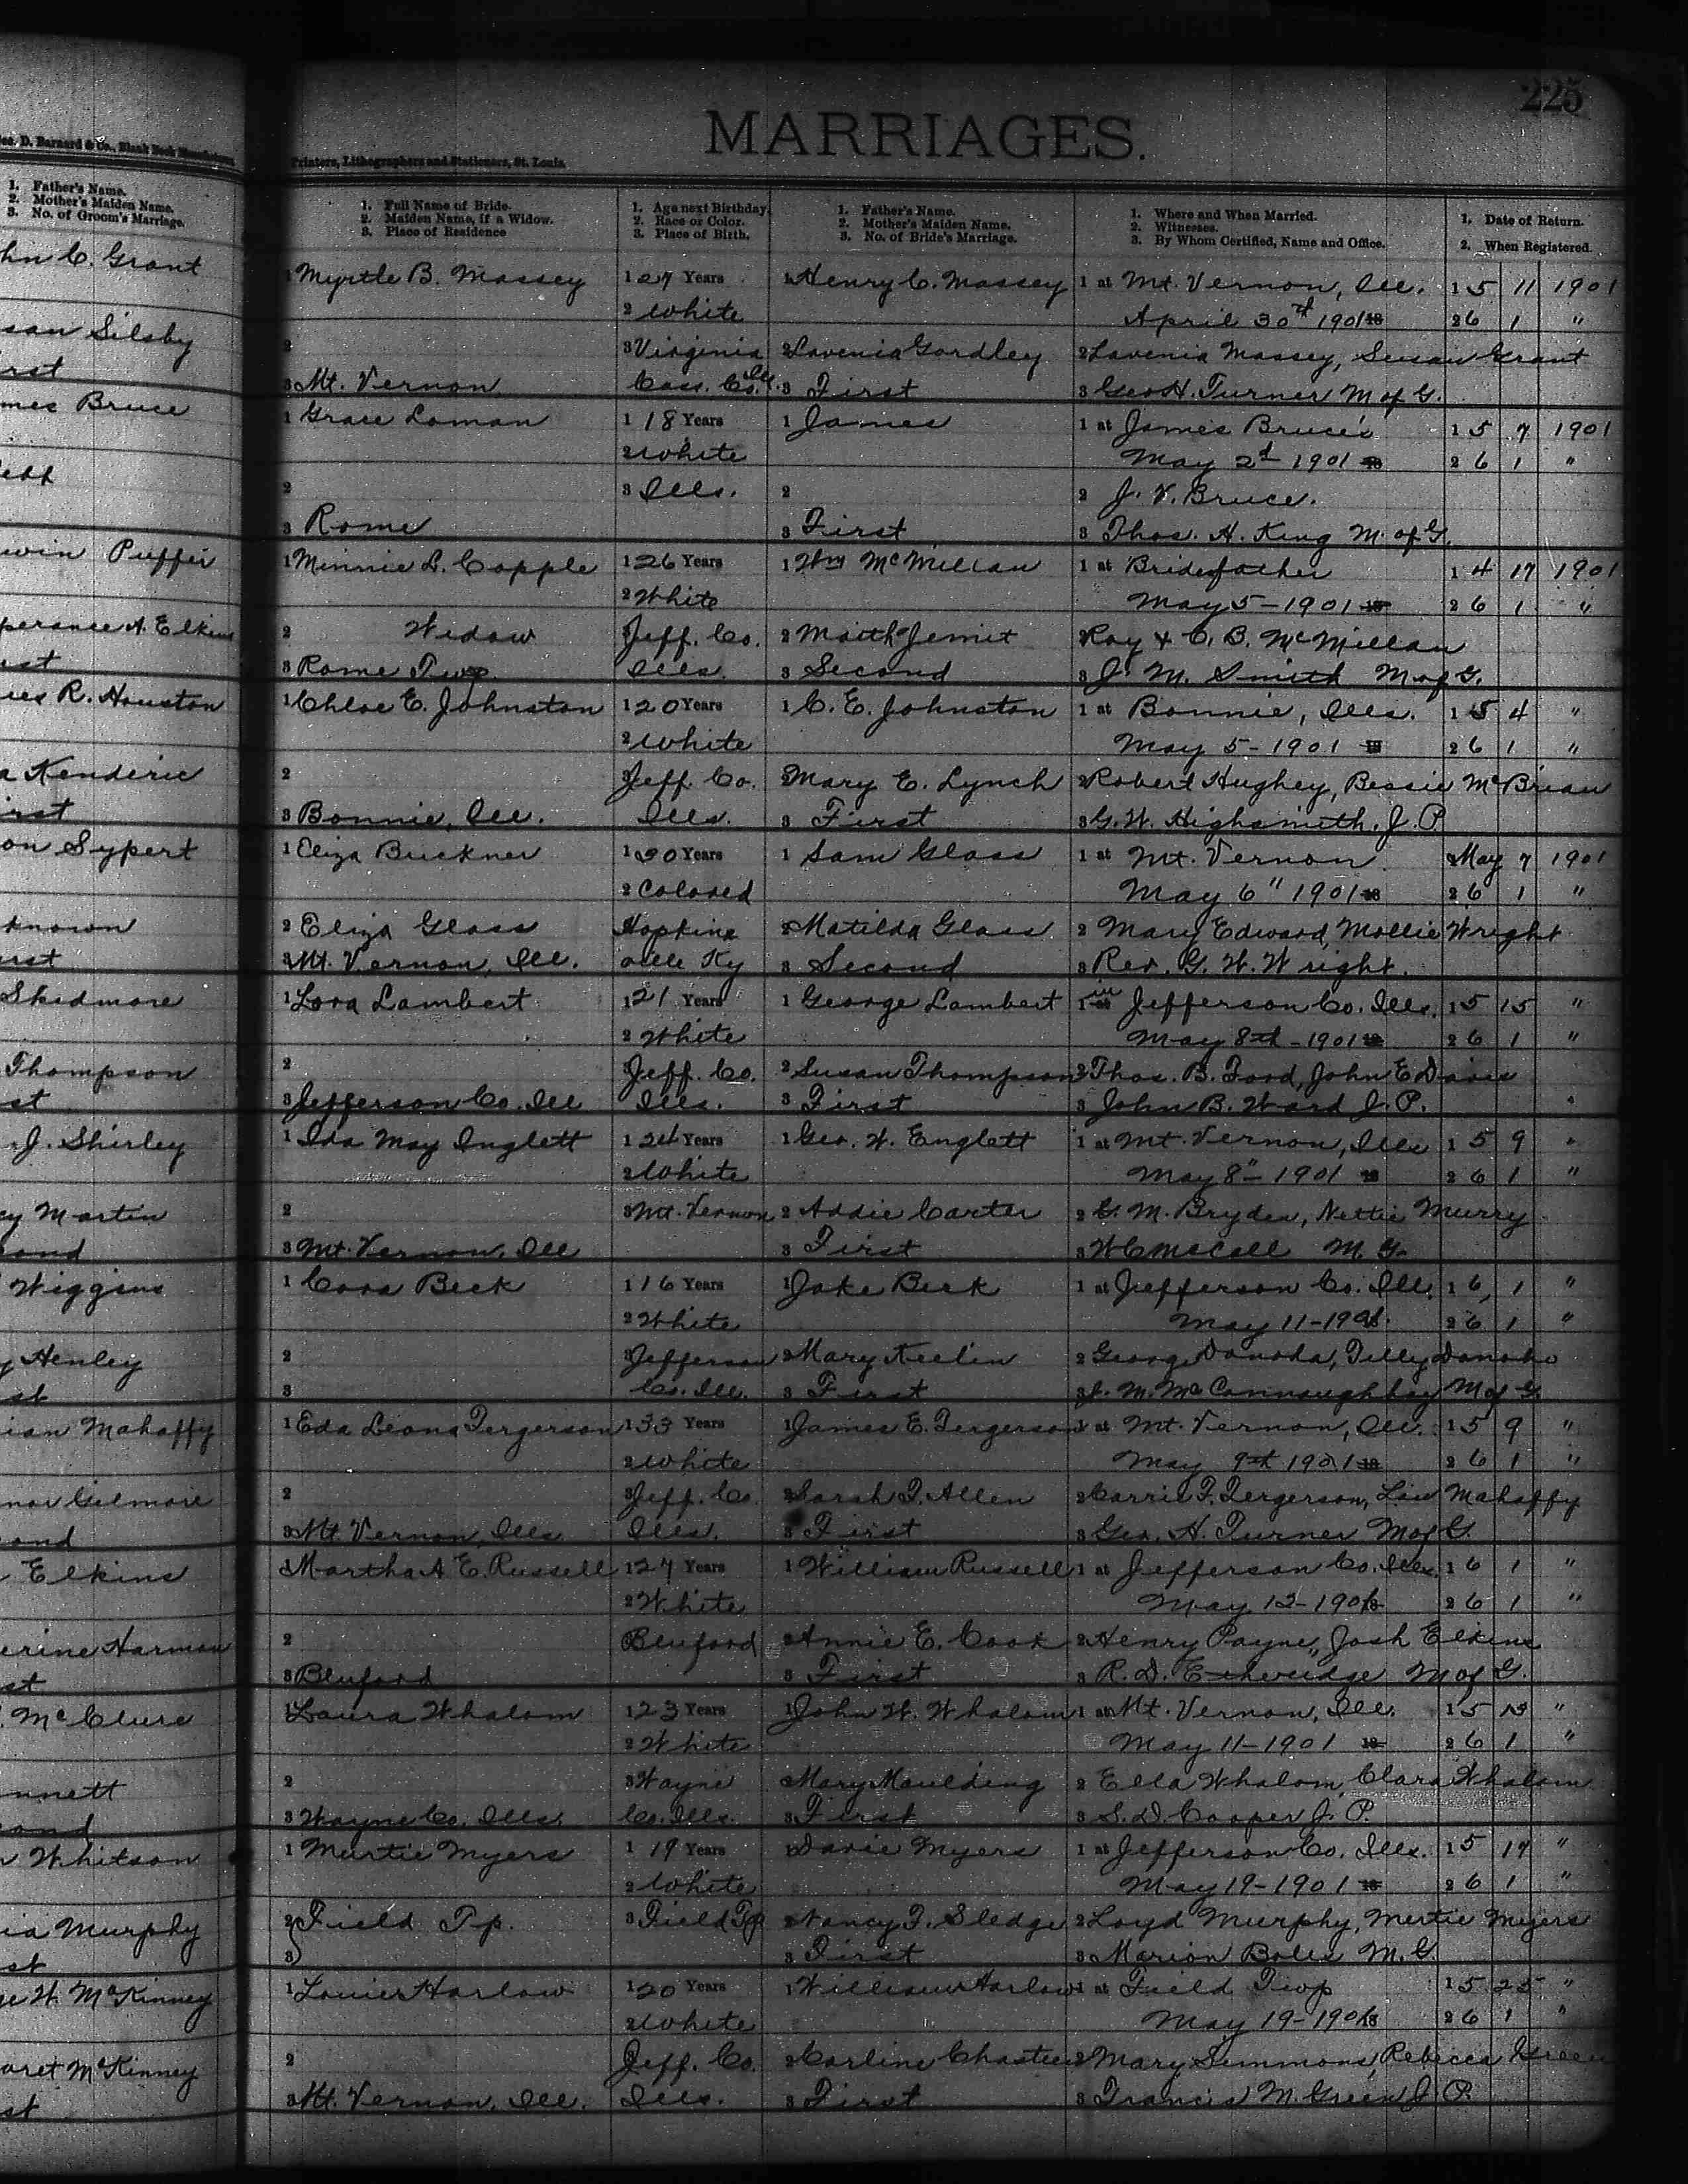 225
MARRIAGES.
Geo. D. Barnard & Co., Blank Book Manufacturers,
Printers, Lithographers and Stationers, St. Louis.
1. Father's Name.
2. Mother's Maiden Name.
3. No. of Groom's Marriage.
1. Full Name of Bride.
2. Maiden Name, if a Widow.
3. Place of Residence
1. Age next Birthday.
2. Race or Color.
3. Place of Birth.
1. Father's Name.
2. Mother's Maiden Name.
3. No. of Bride's Marriage.
1. Where and When Married.
2. Witnesses.
3. By Whom Certified, Name and Office.
1. Date of Return.
2. When Registered.
hn C. Grant 1 Myrtle B. Massey 1 27 Years 1 Henry C. Massey 1 at Mt. Vernon, Ill. 1 5 11 1901
2 White April 30th 1901 18 2 6 1 "
san Silsby 2 3 Virginia 2 Lavenia Gordley 2 Lavenia Massey, Susan Grant
rst 3 Mt. Vernon Cass. Co. Ill. 3 First 3 Geo H. Turner M of G.
mes Bruce 1 Grace Loman 1 18 Years 1 James 1 at James Bruce's 1 5 7 1901
2 White May 2d 1901 18 2 6 1 "
2 3 Ills. 2 2 J. V. Bruce.
3 Rome 3 First 3 Thos. H. King M. of G.
win Puffer 1 Minnie L. Copple 1 26 Years 1 Wm McMillan 1 at Bridefather 1 4 17 1901
2 White May 5 - 1901 18 2 6 1 "
perance A. Elkins 2 Widow 3 Jeff. Co. 2 2 Roy & C. B. McMillan
st 3 Rome Twp. Ills. 3 Second 3 J. M. Smith M of G.
es R. Houston 1 Chloe E. Johnston 1 20 Years 1 C. E. Johnston 1 at Bonnie, Ills. 1 5 4 "
2 White May 5 - 1901 18 2 6 1 "
a Kenderic 2 3 Jeff. Co. 2 Mary E. Lynch 2 Robert Hughey, Bessie McBrian
rst 3 Bonnie, Ill. Ills. 3 First 3 G. W. Highsmith. J. P.
on Sypert 1 Eliza Buckner 1 30 Years 1 Sam Glass 1 at Mt. Vernon May 7 1901
2 Colored May 6" 1901 18 2 6 1 "
known 2 Eliza Glass Hopkins 2 Matilda Glass 2 Mary Edward, Mollie Wright
rst 3 Mt. Vernon, Ill. ville Ky 3 Second 3 Rev. G. W. Wright.
Skidmore 1 Lora Lambert 1 21 Years 1 George Lambert 1 in Jefferson Co. Ills. 1 5 15 "
2 White May 8th - 1901 18 2 6 1 "
Thompson 2 3 Jeff. Co. 2 Susan Thompson 2 Thos. B. Ford, John E Davis
st 3 Jefferson Co. Ill Ills. 3 First 3 John B. Ward J. P.
J. Shirley 1 Ida May Inglett 1 24 Years 1 Geo. W. Englett 1 at Mt. Vernon, Ills 1 5 9 "
2 White May 8" - 1901 18 2 6 1 "
cy Martin 2 3 Mt. Vernon 2 Addie Carter 2 G. M. Bryden, Nettie Murry
ond 3 Mt. Vernon, Ill 3 First 3 W C McCall M. G.
Wiggins 1 Cora Beck 1 16 Years 1 Jake Beck 1 at Jefferson Co. Ill. 1 6 1 "
2 White May 11 - 1901. 2 6 1 "
y Henley 2 3 Jefferson 2 Mary Keelin 2 George Donoda, Tilly Donoho
st 3 Co. Ill. 3 First 3 J. M. McConnaughhay M of G.
ian Mahaffy 1 Eda Leona Tergerson 1 33 Years 1 James E. Tergerson 1 at Mt. Vernon, Ill. 1 5 9 "
2 White May 9th 1901 18 2 6 1 "
nor Gilmore 2 3 Jeff. Co. 2 Sarah J. Allen 2 Carrie F. Tergerson, Mahaffy
ond 3 Mt. Vernon, Ills. Ills. 3 First 3 Geo. H. Turner M of G.
Elkins 1 Martha A E. Russell 1 27 Years 1 William Russell 1 at Jefferson Co. Ills. 1 6 1 "
2 White May 12 - 1901 18 2 6 1 "
erine Harmon 2 3 Bluford 2 Annie E. Cook 2 Henry Payne, Josh Elkins
st 3 Bluford 3 First 3 R. D. Etheridge M of G.
McClure 1 Laura Whalom 1 23 Years 1 John W. Whalom 1 at Mt. Vernon, Ill. 1 5 13 "
2 White May 11 - 1901 18 2 6 1 "
nnett 2 3 Wayne 2 Mary Maulding 2 Ella Whalom, Clara Whalom
ond 3 Wayne Co. Ills. Co. Ills. 3 First 3 S. D. Cooper J. P.
n Whitson 1 Murtie Myers 1 19 Years 1 Davie Myers 1 at Jefferson Co. Ills. 1 5 17 "
2 White May 19 - 1901 18 2 6 1 "
ia Murphy 2 Field Tp. 3 Field Tp 2 Nancy J. Sledge 2 Loyd Murphy, Mertie Myers
st 3 3 First 3 Marion Boles M. G.
ge W. McKinney 1 Louier Harlow 1 20 Years 1 William Harlow 1 at Field Twp 1 5 25 "
2 White May 19 - 1901 18 2 6 1 "
aret McKinney 2 3 Jeff. Co. 2 Carline 2 Mary Simmons, Rebecca Green
st 3 Mt. Vernon, Ill. Ills. 3 First 3 Francis M. Green J. P.